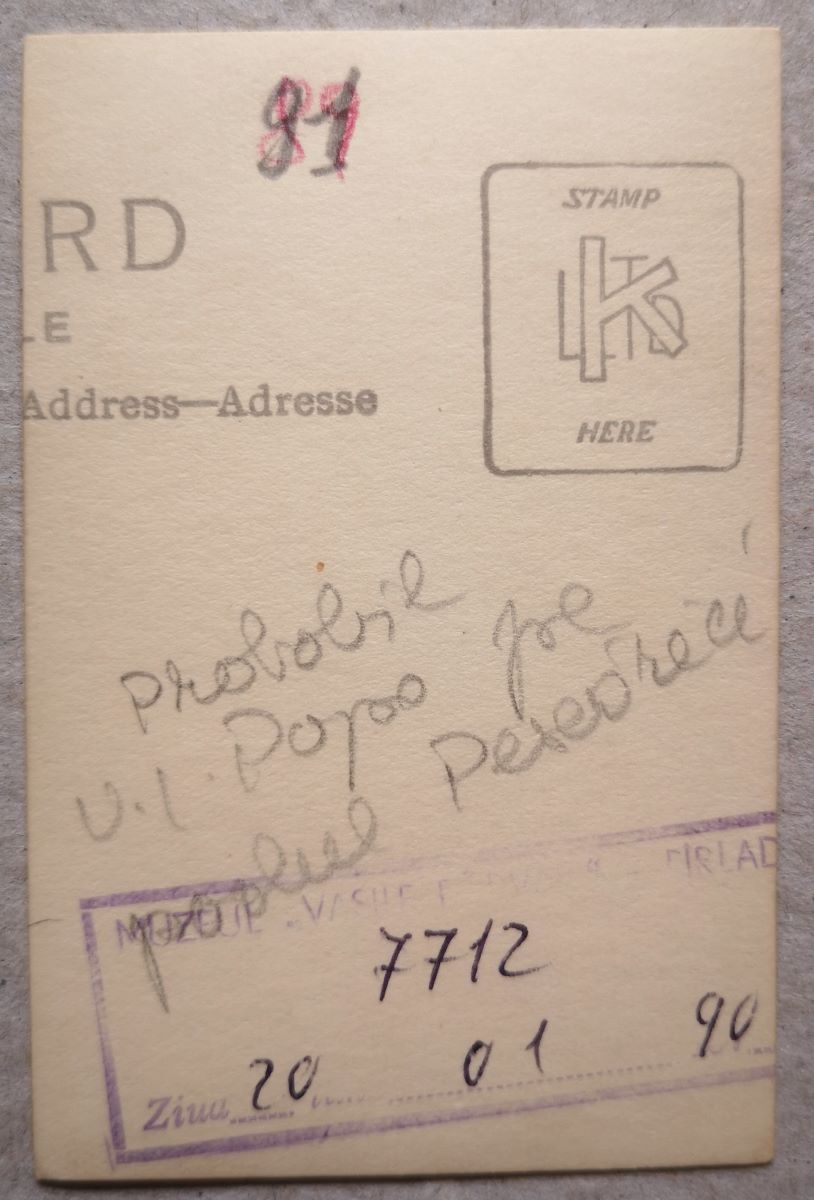 81
RD
LE
Address—Adresse
STAMP
K LTD
HERE
probabil
V.I. Popa pe
podul Pescăriei
MUZEUL „VASILE
7712
Ziua 20 01 90